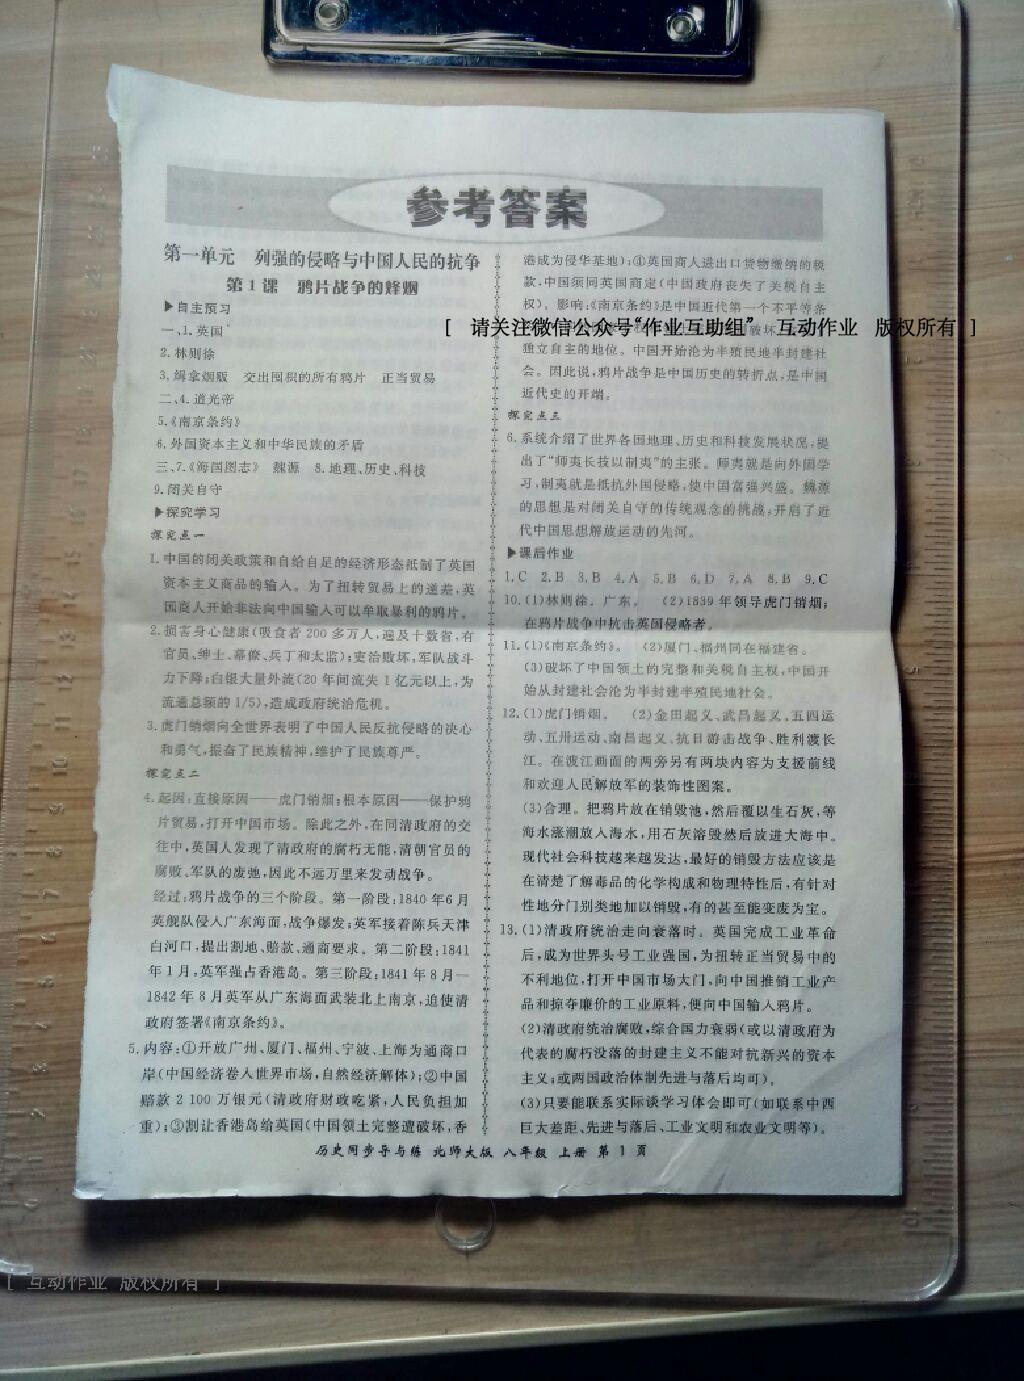 参考答案
第一单元 列强的侵略与中国人民的抗争
第1课 鸦片战争的烽烟
▶自主预习
一、1.英国
2.林则徐
3.缉拿烟贩 交出囤积的所有鸦片 正当贸易
二、4.道光帝
5.《南京条约》
6.外国资本主义和中华民族的矛盾
三、7.《海国图志》 魏源 8.地理、历史、科技
9.闭关自守
▶探究学习
探究点一
1.中国的闭关政策和自给自足的经济形态抵制了英国
资本主义商品的输入。为了扭转贸易上的逆差,英
国商人开始非法向中国输入可以牟取暴利的鸦片。
2.损害身心健康(吸食者200多万人,遍及十数省,有
官员、绅士、幕僚、兵丁和太监);吏治败坏,军队战斗
力下降;白银大量外流(20年间流失1亿元以上,为
流通总额的1/5),造成政府统治危机。
3.虎门销烟向全世界表明了中国人民反抗侵略的决心
和勇气,振奋了民族精神,维护了民族尊严。
探究点二
4.起因:直接原因——虎门销烟;根本原因——保护鸦
片贸易,打开中国市场。除此之外,在同清政府的交
往中,英国人发现了清政府的腐朽无能,清朝官员的
腐败、军队的废弛,因此不远万里来发动战争。
经过:鸦片战争的三个阶段。第一阶段:1840年6月
英舰队侵入广东海面,战争爆发;英军接着陈兵天津
白河口,提出割地、赔款、通商要求。第二阶段:1841
年1月,英军强占香港岛。第三阶段:1841年8月—
1842年8月英军从广东海面武装北上南京,迫使清
政府签署《南京条约》。
5.内容:①开放广州、厦门、福州、宁波、上海为通商口
岸(中国经济卷入世界市场,自然经济解体);②中国
赔款2 100万银元(清政府财政吃紧,人民负担加
重);③割让香港岛给英国(中国领土完整遭破坏,香
港成为侵华基地);④英国商人进出口货物缴纳的税
款,中国须同英国商定(中国政府丧失了关税自主
权)。影响:《南京条约》是中国近代第一个不平等条
[ 请关注微信公众号“作业互助组” 互动作业 版权所有 ]
独立自主的地位。中国开始沦为半殖民地半封建社
会。因此说,鸦片战争是中国历史的转折点,是中国
近代史的开端。
探究点三
6.系统介绍了世界各国地理、历史和科技发展状况,提
出了“师夷长技以制夷”的主张。师夷就是向外国学
习,制夷就是抵抗外国侵略,使中国富强兴盛。魏源
的思想是对闭关自守的传统观念的挑战,开启了近
代中国思想解放运动的先河。
▶课后作业
1.C 2.B 3.B 4.A 5.B 6.D 7.A 8.B 9.C
10.(1)林则徐。广东。 (2)1839年领导虎门销烟;
在鸦片战争中抗击英国侵略者。
11.(1)《南京条约》。 (2)厦门、福州同在福建省。
(3)破坏了中国领土的完整和关税自主权,中国开
始从封建社会沦为半封建半殖民地社会。
12.(1)虎门销烟。 (2)金田起义、武昌起义、五四运
动、五卅运动、南昌起义、抗日游击战争、胜利渡长
江。在渡江画面的两旁另有两块内容为支援前线
和欢迎人民解放军的装饰性图案。
(3)合理。把鸦片放在销毁池,然后覆以生石灰,等
海水涨潮放入海水,用石灰溶毁然后放进大海中。
现代社会科技越来越发达,最好的销毁方法应该是
在清楚了解毒品的化学构成和物理特性后,有针对
性地分门别类地加以销毁,有的甚至能变废为宝。
13.(1)清政府统治走向衰落时。英国完成工业革命
后,成为世界头号工业强国,为扭转正当贸易中的
不利地位,打开中国市场大门,向中国推销工业产
品和掠夺廉价的工业原料,便向中国输入鸦片。
(2)清政府统治腐败,综合国力衰弱(或以清政府为
代表的腐朽没落的封建主义不能对抗新兴的资本
主义;或两国政治体制先进与落后均可)。
(3)只要能联系实际谈学习体会即可(如联系中西
巨大差距、先进与落后、工业文明和农业文明等)。
历史同步导与练 北师大版 八年级 上册 第1页
[ 互动作业 版权所有 ]